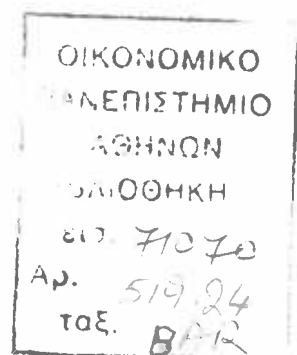 ΟΙΚΟΝΟΜΙΚΟ
ΠΑΝΕΠΙΣΤΗΜΙΟ
ΑΘΗΝΩΝ
ΒΙΒΛΙΟΘΗΚΗ
εισ. 71070
Αρ. 519.24
ταξ.